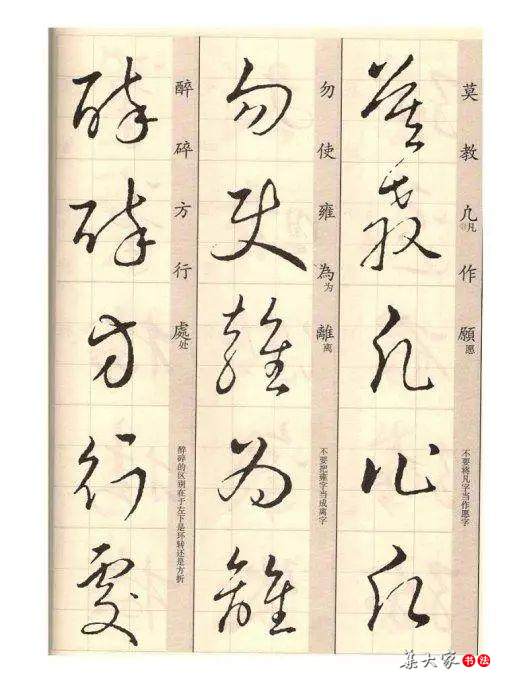 莫教凡作願
莫教凢凡作願愿
不要将凡字当作愿字
勿使雍為離
勿使雍為为離离
不要把雍字当成离字
醉碎方行處
醉碎方行處处
醉碎的区别在于左下是环转还是方折
集大家书法